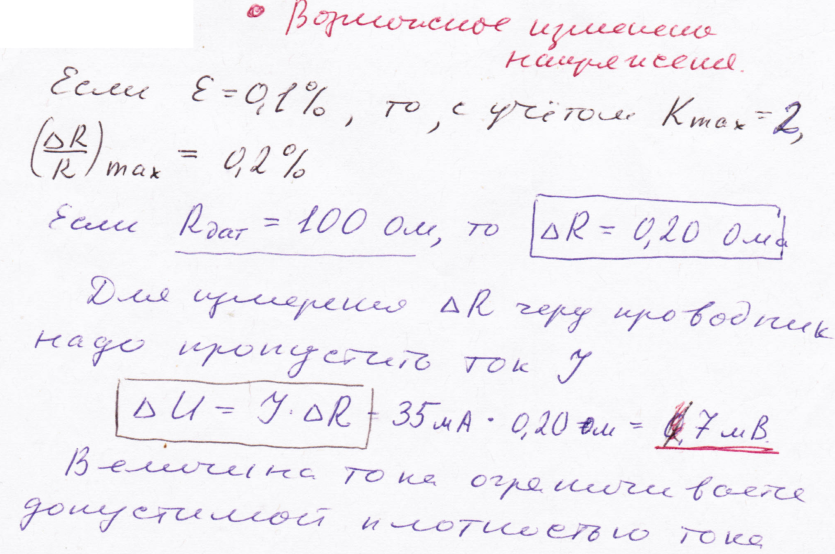 • Возможное изменение
напряжения.
Если ε = 0,1%, то, с учётом Kmax = 2,
(ΔR/R)max = 0,2%
Если Rдат = 100 Ом, то ΔR = 0,20 Ома
Для измерения ΔR через проводник
надо пропустить ток J
ΔU = J·ΔR = 35 мА · 0,20 Ом = 7 мВ.
Величина тока ограничивается
допустимой плотностью тока